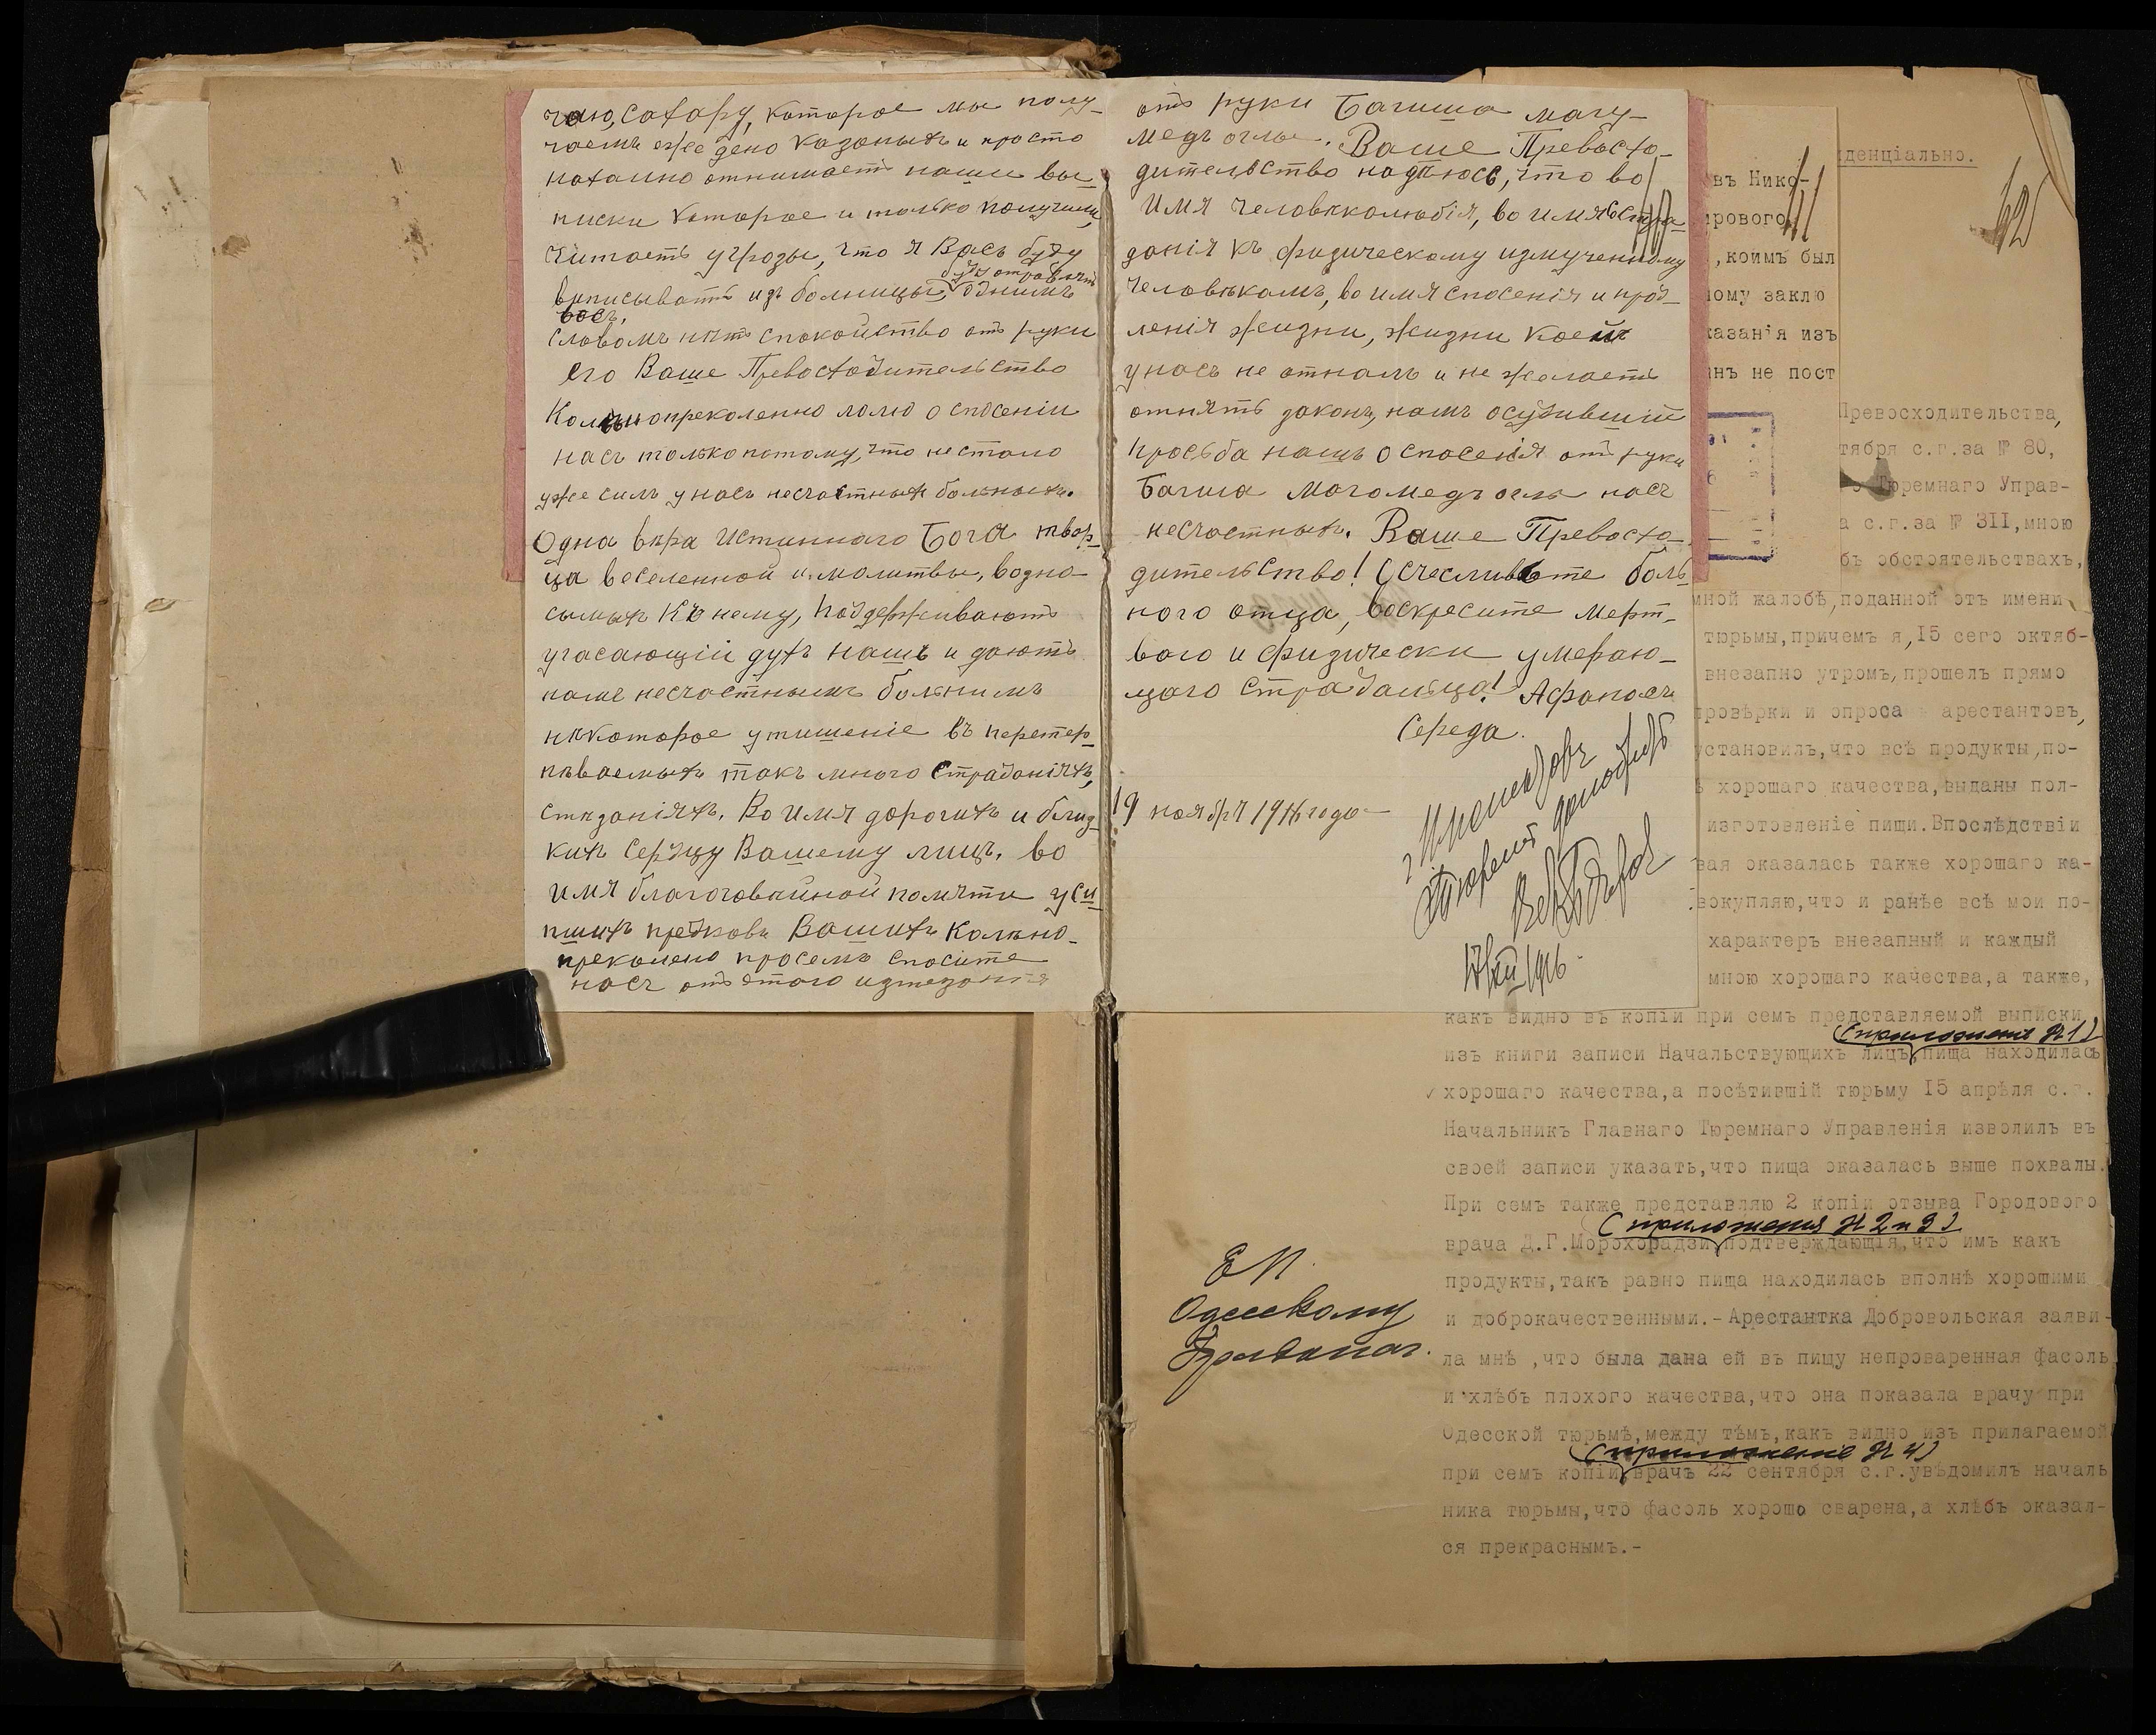 чаю, сахару, которое мы полу-
чаемъ ежедено казаныхъ и просто
нахално отнимаетъ наши вы-
писки которое и только получили,
читаетъ угрозы, что я Васъ буду
буду отправлять
выписывать изъ больницы, однимъ
васъ,
словомъ нѣтъ спокойство отъ руки
его Ваше Превосходительство
Колѣнопреколенно молю о спосеніи
насъ только потому, что не стало
уже силъ у насъ несчастныхъ больныхъ.
Одна вѣра Истинного Бога твор-
ца вселенной и молитвы, возно-
сымыхъ Къ нему, поддерживаютъ
угасающіи духъ нашъ и даютъ
намъ несчастнымъ больнимъ
нѣкоторое утишеніе въ перетер-
пѣваемыхъ такъ много страданіяхъ,
стязаніяхъ. Во имя дорогихъ и близ-
кихъ Сердцу Вашему лицъ, во
имя благоговѣйной помяти уси-
пшихъ предковъ Вашихъ Колѣно-
преколено просемъ спосите
насъ отъ этого изтезанія
отъ руки Багиша магу-
медъ оглы. Ваше Превосхо-
дительство надѣюсь, что во
Имя человѣколюбія, во имя состра-
данія къ физическому измученному
человѣкомъ, во имя спосенія и прод-
ленія жизни, жизни коей
у насъ не отналъ и не желаетъ
отнять законъ, насъ осудившій
просьба нашъ о спосенія отъ руки
Багиша Магомедъ оглы насъ
несчастныхъ. Ваше Превосхо-
дительство! Осчесливьте боль-
ного отца, воскресите мерт-
вого и физически умераю-
щаго страдальца! Афанасъ
Середа.
19 ноября 1916 года
17/XII 1916
денціально.
въ Нико-
ирового
, коимъ был
ному заклю
казанія изъ
инъ не пост
Превосходительства,
тября с.г. за № 80,
Тюремнаго Управ-
а с.г. за № 311, мною
бъ обстоятельствахъ,
мной жалобѣ, поданной отъ имени
тюрьмы, причемъ я, 15 сего октяб-
внезапно утромъ, прошелъ прямо
провѣрки и опроса арестантовъ,
установилъ, что всѣ продукты, по-
хорошаго качества, выданы пол-
изготовленіе пищи. Впослѣдствіи
вая оказалась также хорошаго ка-
вокупляю, что и ранѣе всѣ мои по-
характеръ внезапный и каждый
мною хорошаго качества, а также,
какъ видно въ копіи при семъ представляемой выписки
(приложеніе № 1)
изъ книги записи Начальствующихъ лицъ, пища находилась
хорошаго качества, а посѣтившій тюрьму 15 апрѣля с.г.
Начальникъ Главнаго Тюремнаго Управленія изволилъ въ
своей записи указать, что пища оказалась выше похвалы.
При семъ также представляю 2 копіи отзыва Городового
(приложенія № 2 и 3)
врача Д.Г. Морохорадзи подтверждающія, что имъ какъ
продукты, такъ равно пища находилась вполнѣ хорошими
и доброкачественными.- Арестантка Добровольская заяви-
ла мнѣ, что была дана ей въ пищу непроваренная фасоль
и хлѣбъ плохого качества, что она показала врачу при
Одесской тюрьмѣ, между тѣмъ, какъ видно изъ прилагаемой
(приложеніе № 4)
при семъ копіи врачъ 22 сентября с.г. увѣдомилъ началь
ника тюрьмы, что фасоль хорошо сварена, а хлѣбъ оказал-
ся прекраснымъ.-
Е П.
Одесскому
Градонач.